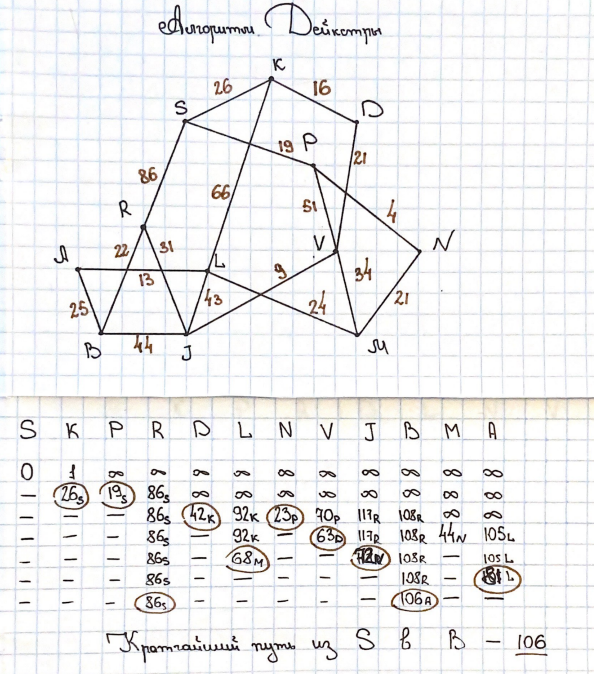 Алгоритм Дейкстры
K
26
16
S
D
19
P
21
86
66
51
4
R
22
31
V
N
A
L
13
9
34
25
43
24
21
B
44
J
M
S K P R D L N V J B M A
0 1 ∞ ∞ ∞ ∞ ∞ ∞ ∞ ∞ ∞ ∞
— 26s 19s 86s ∞ ∞ ∞ ∞ ∞ ∞ ∞ ∞
— — — 86s 42K 92K 23P 70P 117R 108R ∞ ∞
— — — 86s — 92K — 63D 117R 108R 44N 105L
— — — 86s — 68M — — 108R — 105L
— — — 86s — — — — — 108R — 81L
— — — 86s — — — — — 106A — —
Кратчайший путь из S в B — 106